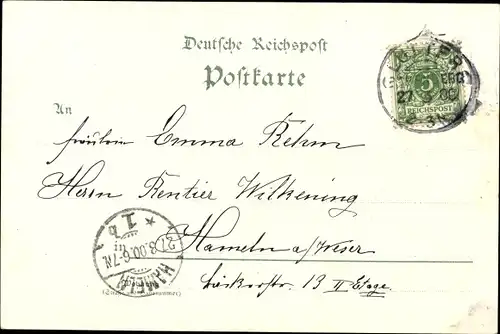 Deutsche Reichspost
Postkarte
An
Fräulein Emma Rehm
Herrn Rentier Wilkening
Hameln a/Weser
13 II Etage.
5
REICHSPOST
27
HAMELN
27.8.00.6-7N
* 1b